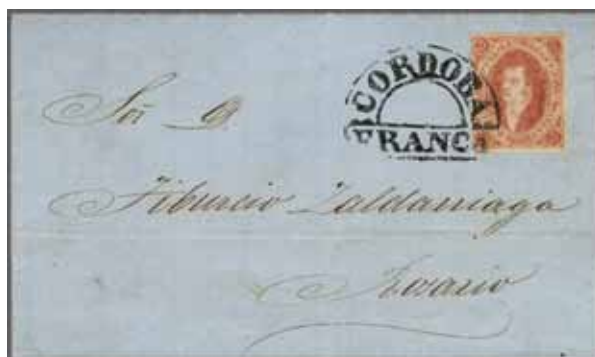 CORDOBA
FRANCA
Sor D.
Tiburcio Zaldarriaga
Rosario